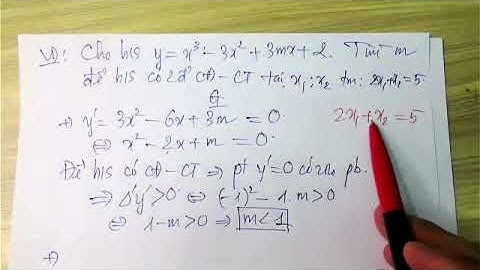 VD: Cho h/s y = x³ - 3x² + 3mx + 2. Tìm m
để h/s có 2 đ' CĐ - CT tại x₁; x₂ tm: 2x₁+x₂=5
G
+) y' = 3x² - 6x + 3m = 0. 2x₁ + x₂ = 5
⇔ x² - 2x + m = 0.
Để h/s có CĐ - CT ⇒ pt y' = 0 có 2 no pb.
⇒ Δ'y' > 0 ⇔ (-1)² - 1.m > 0
⇔ 1 - m > 0 ⇒ m < 1
+)